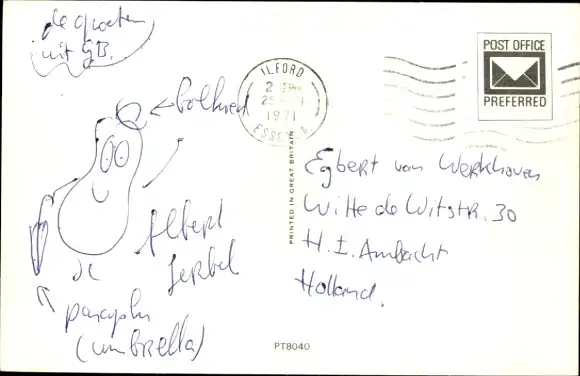 de groeten
uit GB.
← bolhoed
Albert
paraplu
(umbrella)
ILFORD
1971
ESSEX
POST OFFICE
PREFERRED
PRINTED IN GREAT BRITAIN
Egbert van Werkhoven
Witte de Witstr. 30
H. I. Ambacht
Holland.
PT8040